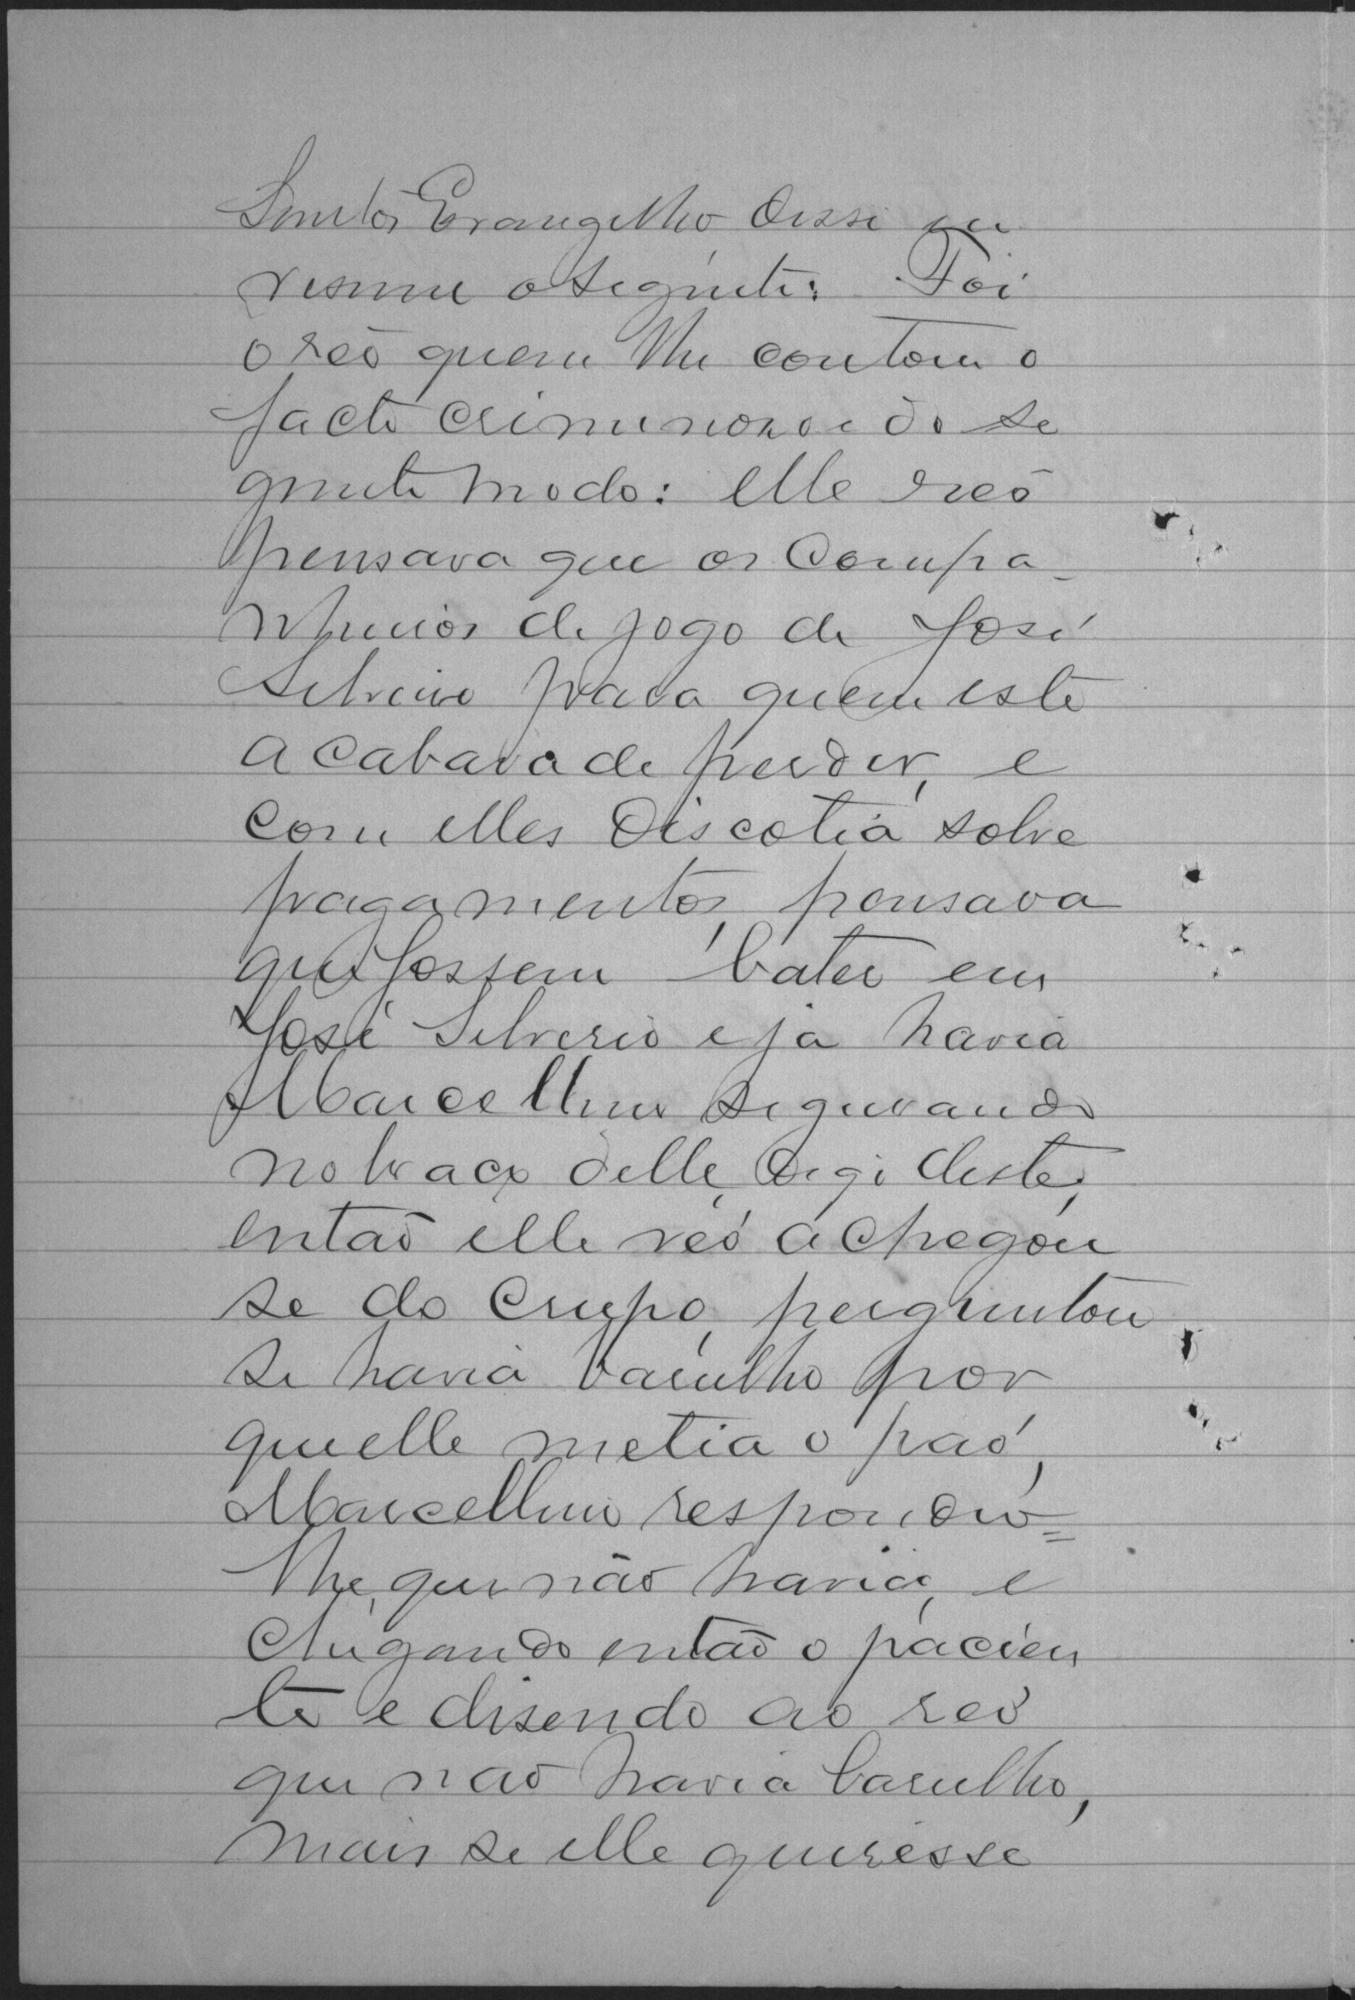 Santos Evangelho disse em
resumo o seguinte: Foi
o reo quem lhe contou o
facto criminozo e do se
guinte modo: elle reo
pensava que os compa-
nheiros de jogo de José
Silverio para quem este
acabava de perder, e
com elles discotia sobre
pagamentos, pensava
que fossem bater em
José Silverio e ja havia
Marcellino segurando
no braço delle, digo deste,
então elle reó achegou
se do crupo, perguntou
se havia barulho por
que elle metia o paó,
Marcellino respondeo=
lhe, que não havia, e
chegando então o pacien
te e disendo ao reo
que nao havia barulho,
mais se elle queresse